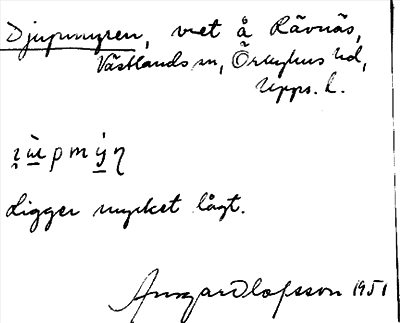 Djupmyren, vret å Rävnäs,
Västlands sn, Örbyhus hd,
Upps. l.
Ligger mycket lågt.
Ansgar Olofsson 1951